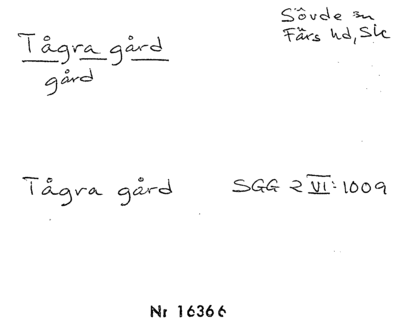 Sövde sn
Färs hd, Sk
Tågra gård
gård
Tågra gård SGG 2 VI:1009
Nr 16366